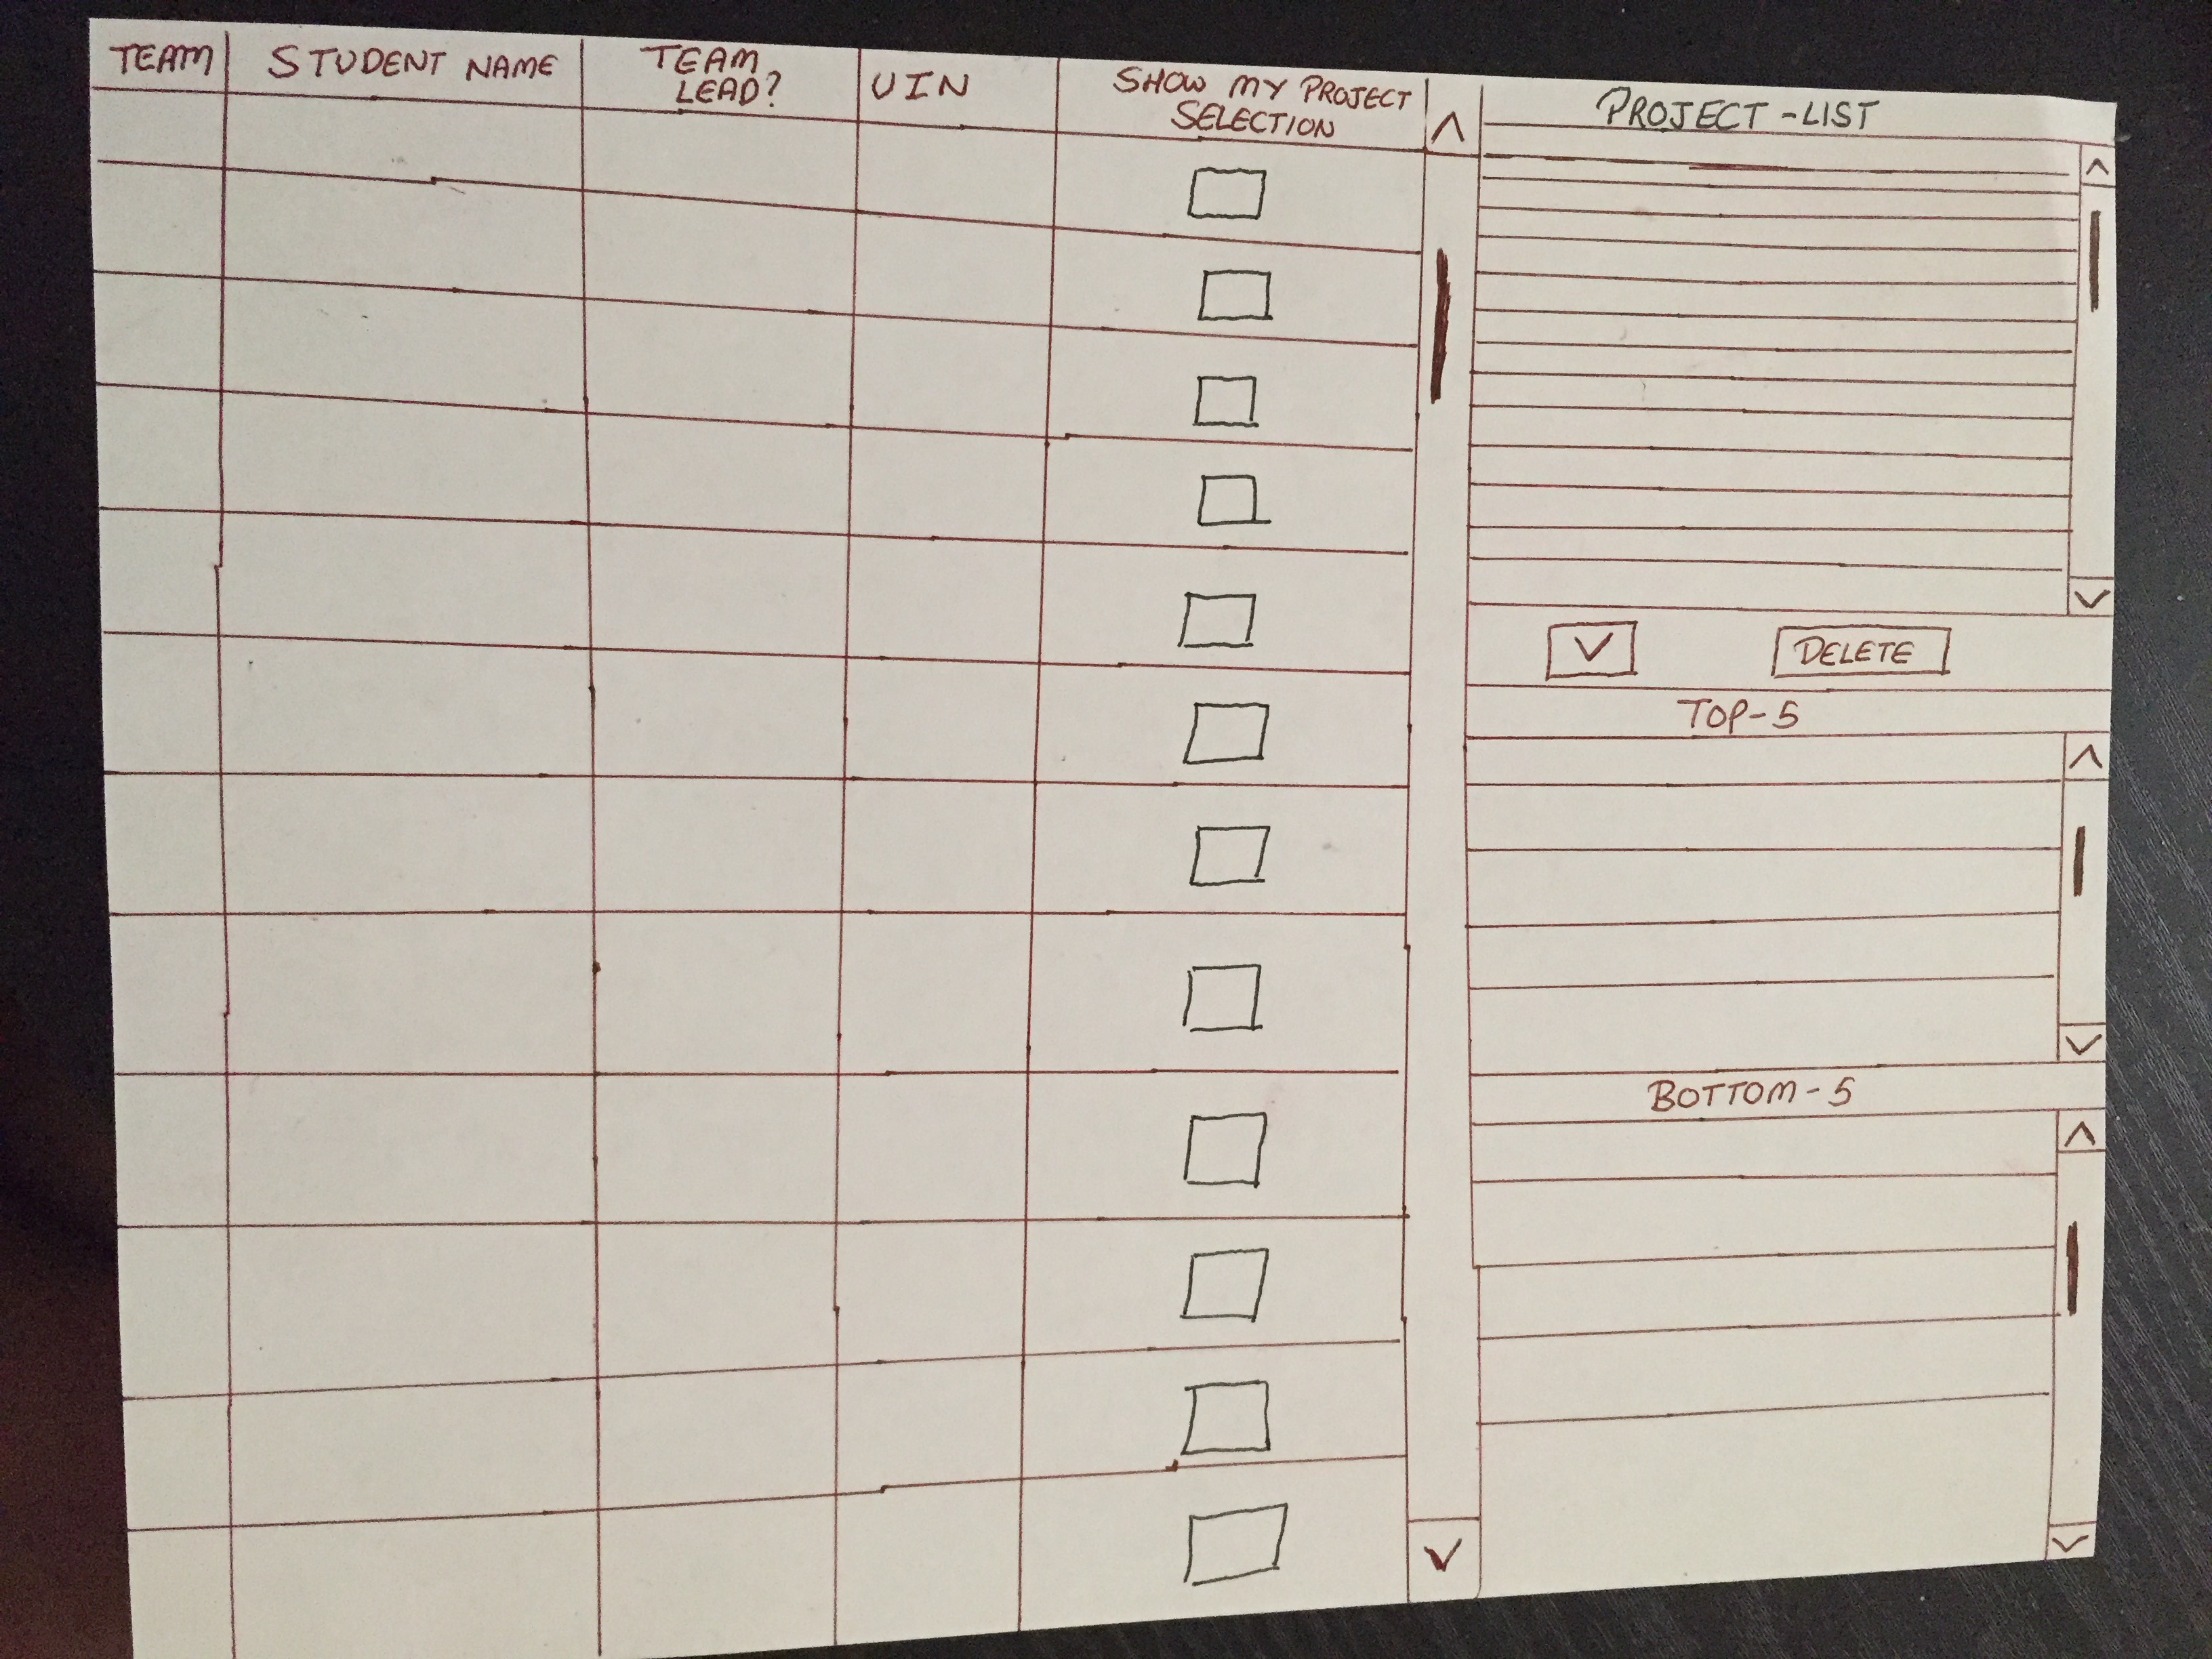 TEAM
STUDENT NAME
TEAM
LEAD?
UIN
SHOW MY PROJECT
SELECTION
PROJECT-LIST
DELETE
TOP-5
BOTTOM-5